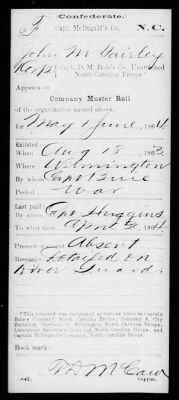 Confederate.
F Capt. McDugald's Co. N.C.
John M Fairley
(Capt. D. M. Buie's Co., Unattached
North Carolina Troops*)
Appears on
Company Muster Roll
of the organization named above,
for May & June, 1864.
Enlisted:
When Aug 18, 1863.
Where Wilmington
By whom Capt Buie
Period War
Last paid:
By whom Capt Huggins
To what time 1864.
Present or absent Absent
Remarks: Detailed on
River Guard
*This company was designated at various times as Captain
Buie's Company, North Carolina Troops; Company A, City
Battalion, Garrison of Wilmington, North Carolina Troops;
Company, North Carolina Troops; and
Captain McDugald's Company, North Carolina Troops.
Book mark:
Copyist.